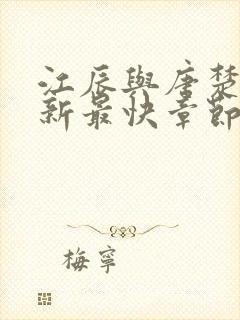 江辰與唐楚
新最快章節
梅寧